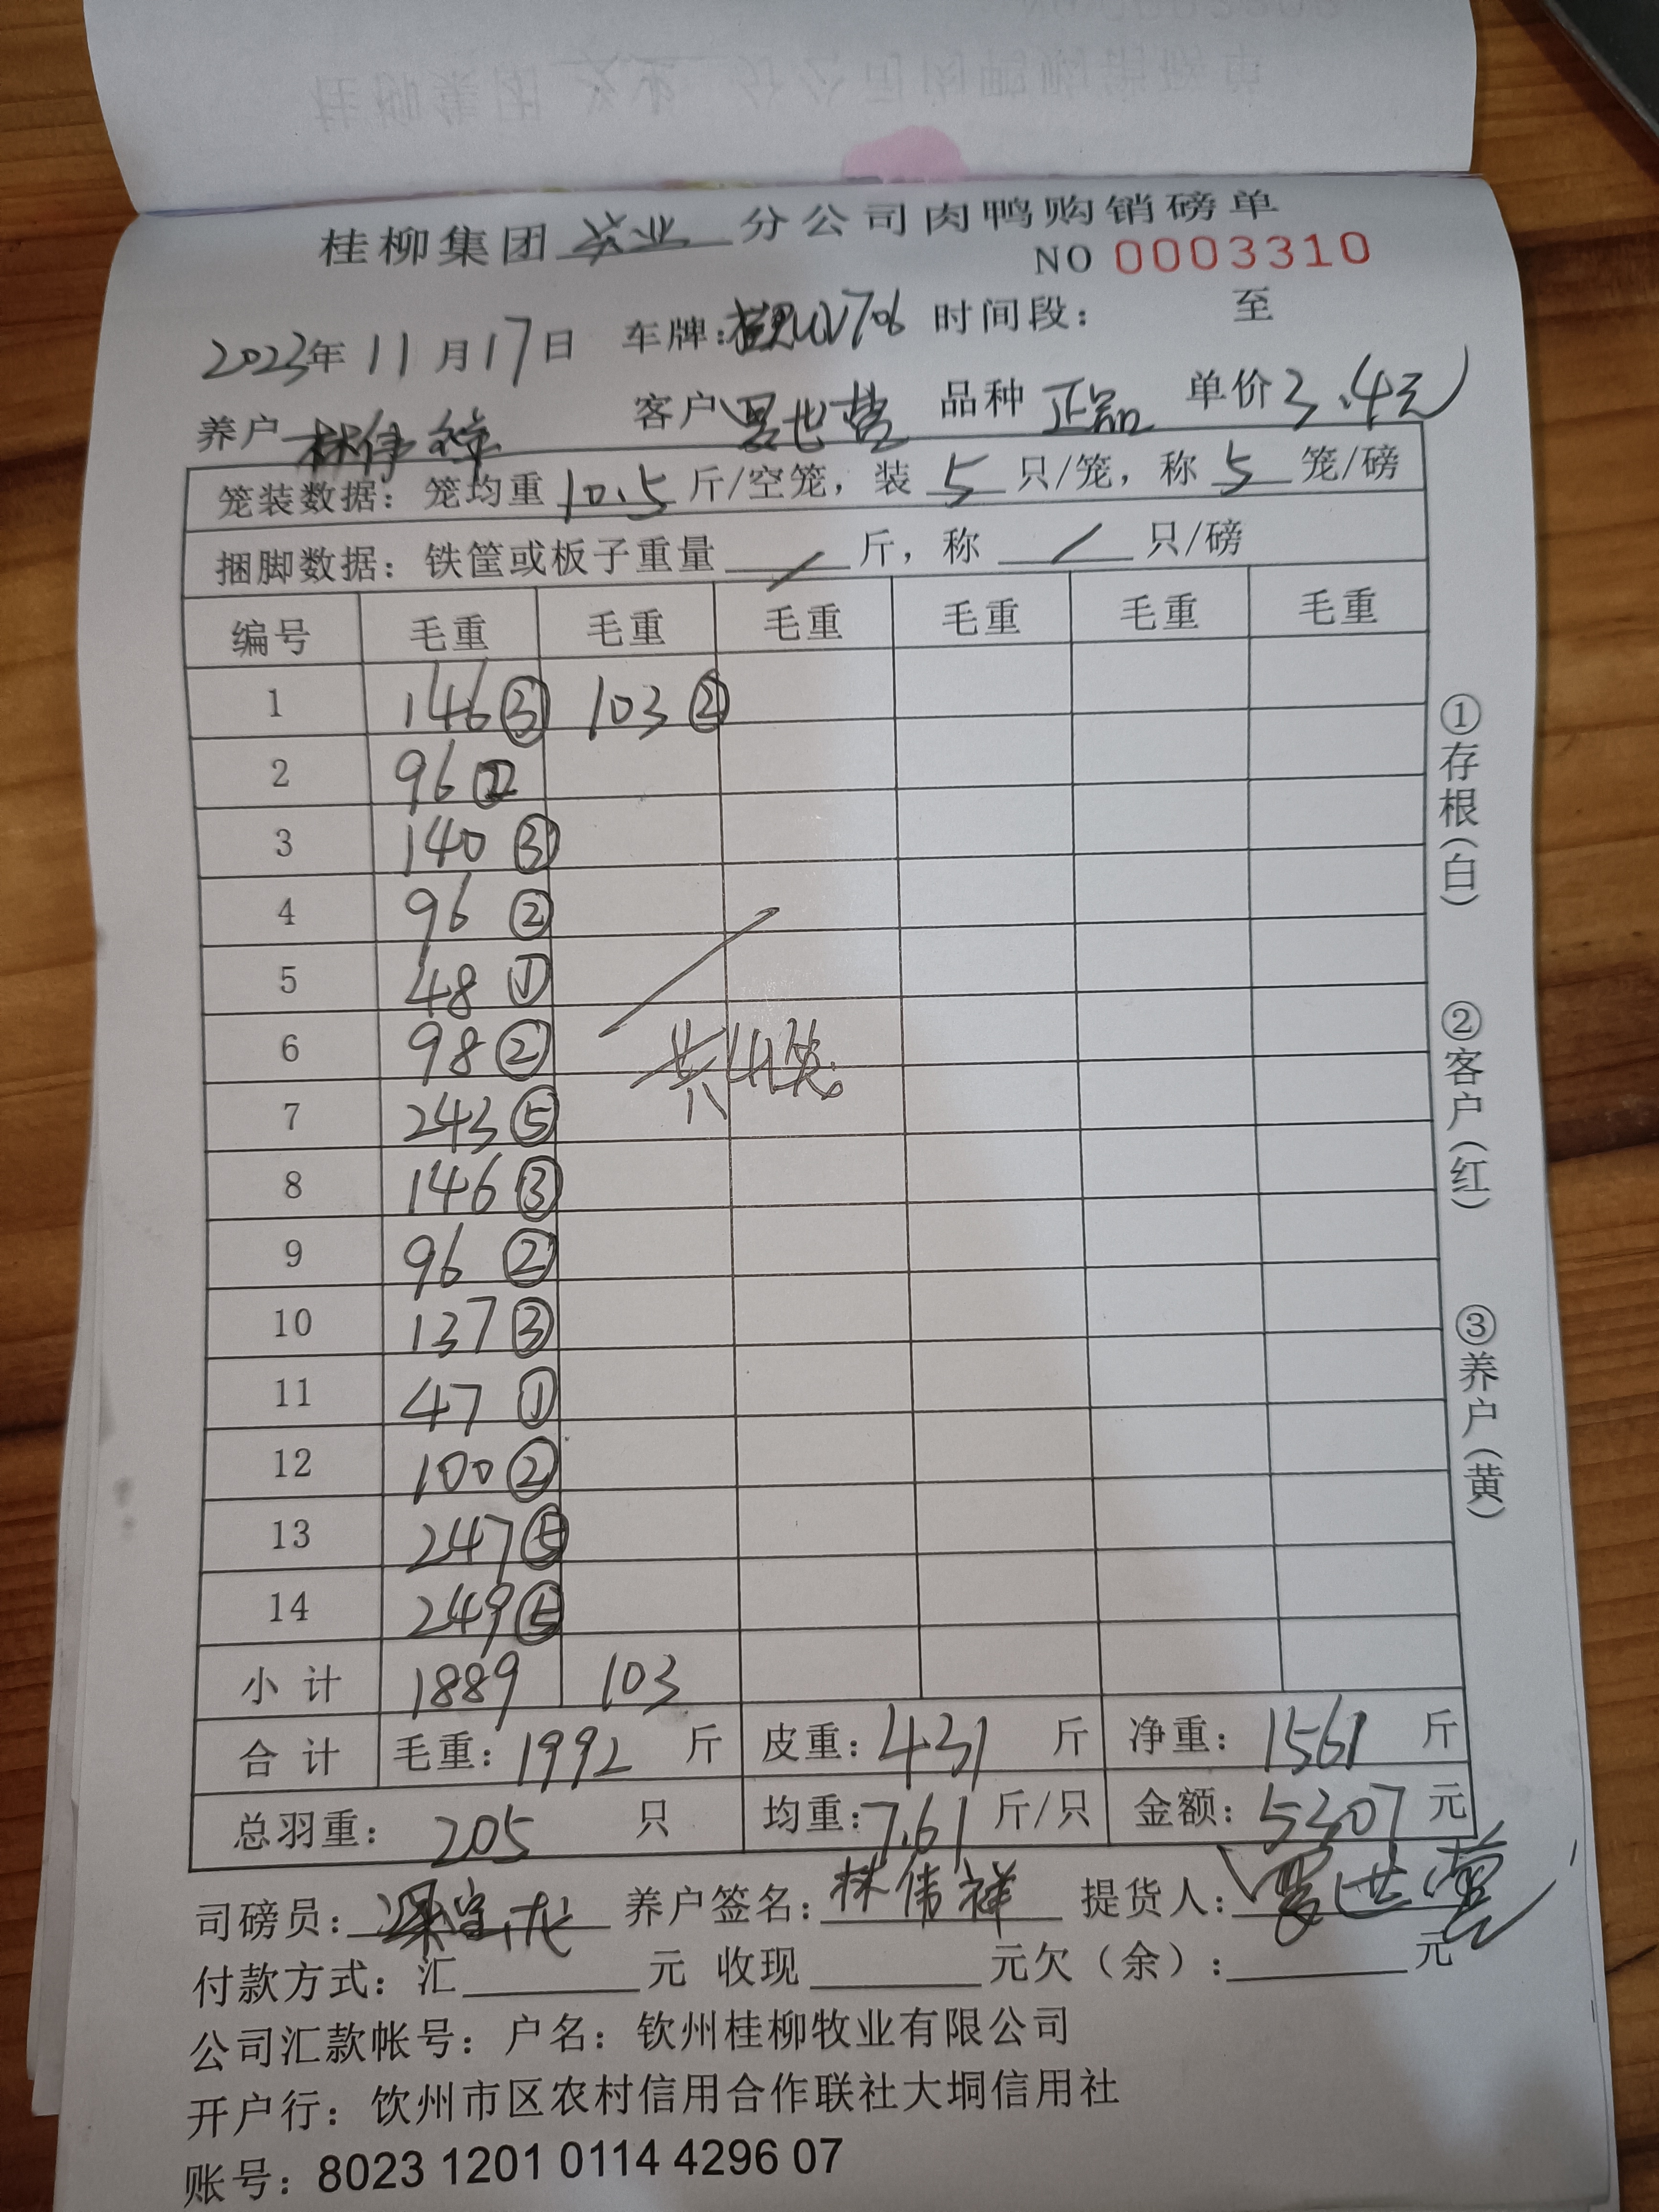 桂柳集团 农业 分公司肉鸭购销磅单
NO 0003310
2023年11月17日 车牌: 706 时间段: 至
养户 林伟祥 客户 品种 正品 单价 3.4元
笼装数据: 笼均重 10.5 斤/空笼, 装 5 只/笼, 称 5 笼/磅
捆脚数据: 铁筐或板子重量 / 斤, 称 / 只/磅
编号 毛重 毛重 毛重 毛重 毛重 毛重
1 146③ 103②
2 96②
3 140③
4 96②
5 48①
6 98②
共41笼
7 243⑤
8 146③
9 96②
10 137③
11 47①
12 100②
13 247⑤
14 249⑤
小计 1889 103
合计 毛重: 1992 斤 皮重: 431 斤 净重: 1561 斤
总羽重: 205 只 均重: 7.61 斤/只 金额: 5307 元
司磅员: 养户签名: 林伟祥 提货人: 罗世营
付款方式: 汇 元 收现 元欠(余): 元
公司汇款帐号: 户名: 钦州桂柳牧业有限公司
开户行: 饮州市区农村信用合作联社大垌信用社
账号: 8023 1201 0114 4296 07
①存根(白)
②客户(红)
③养户(黄)